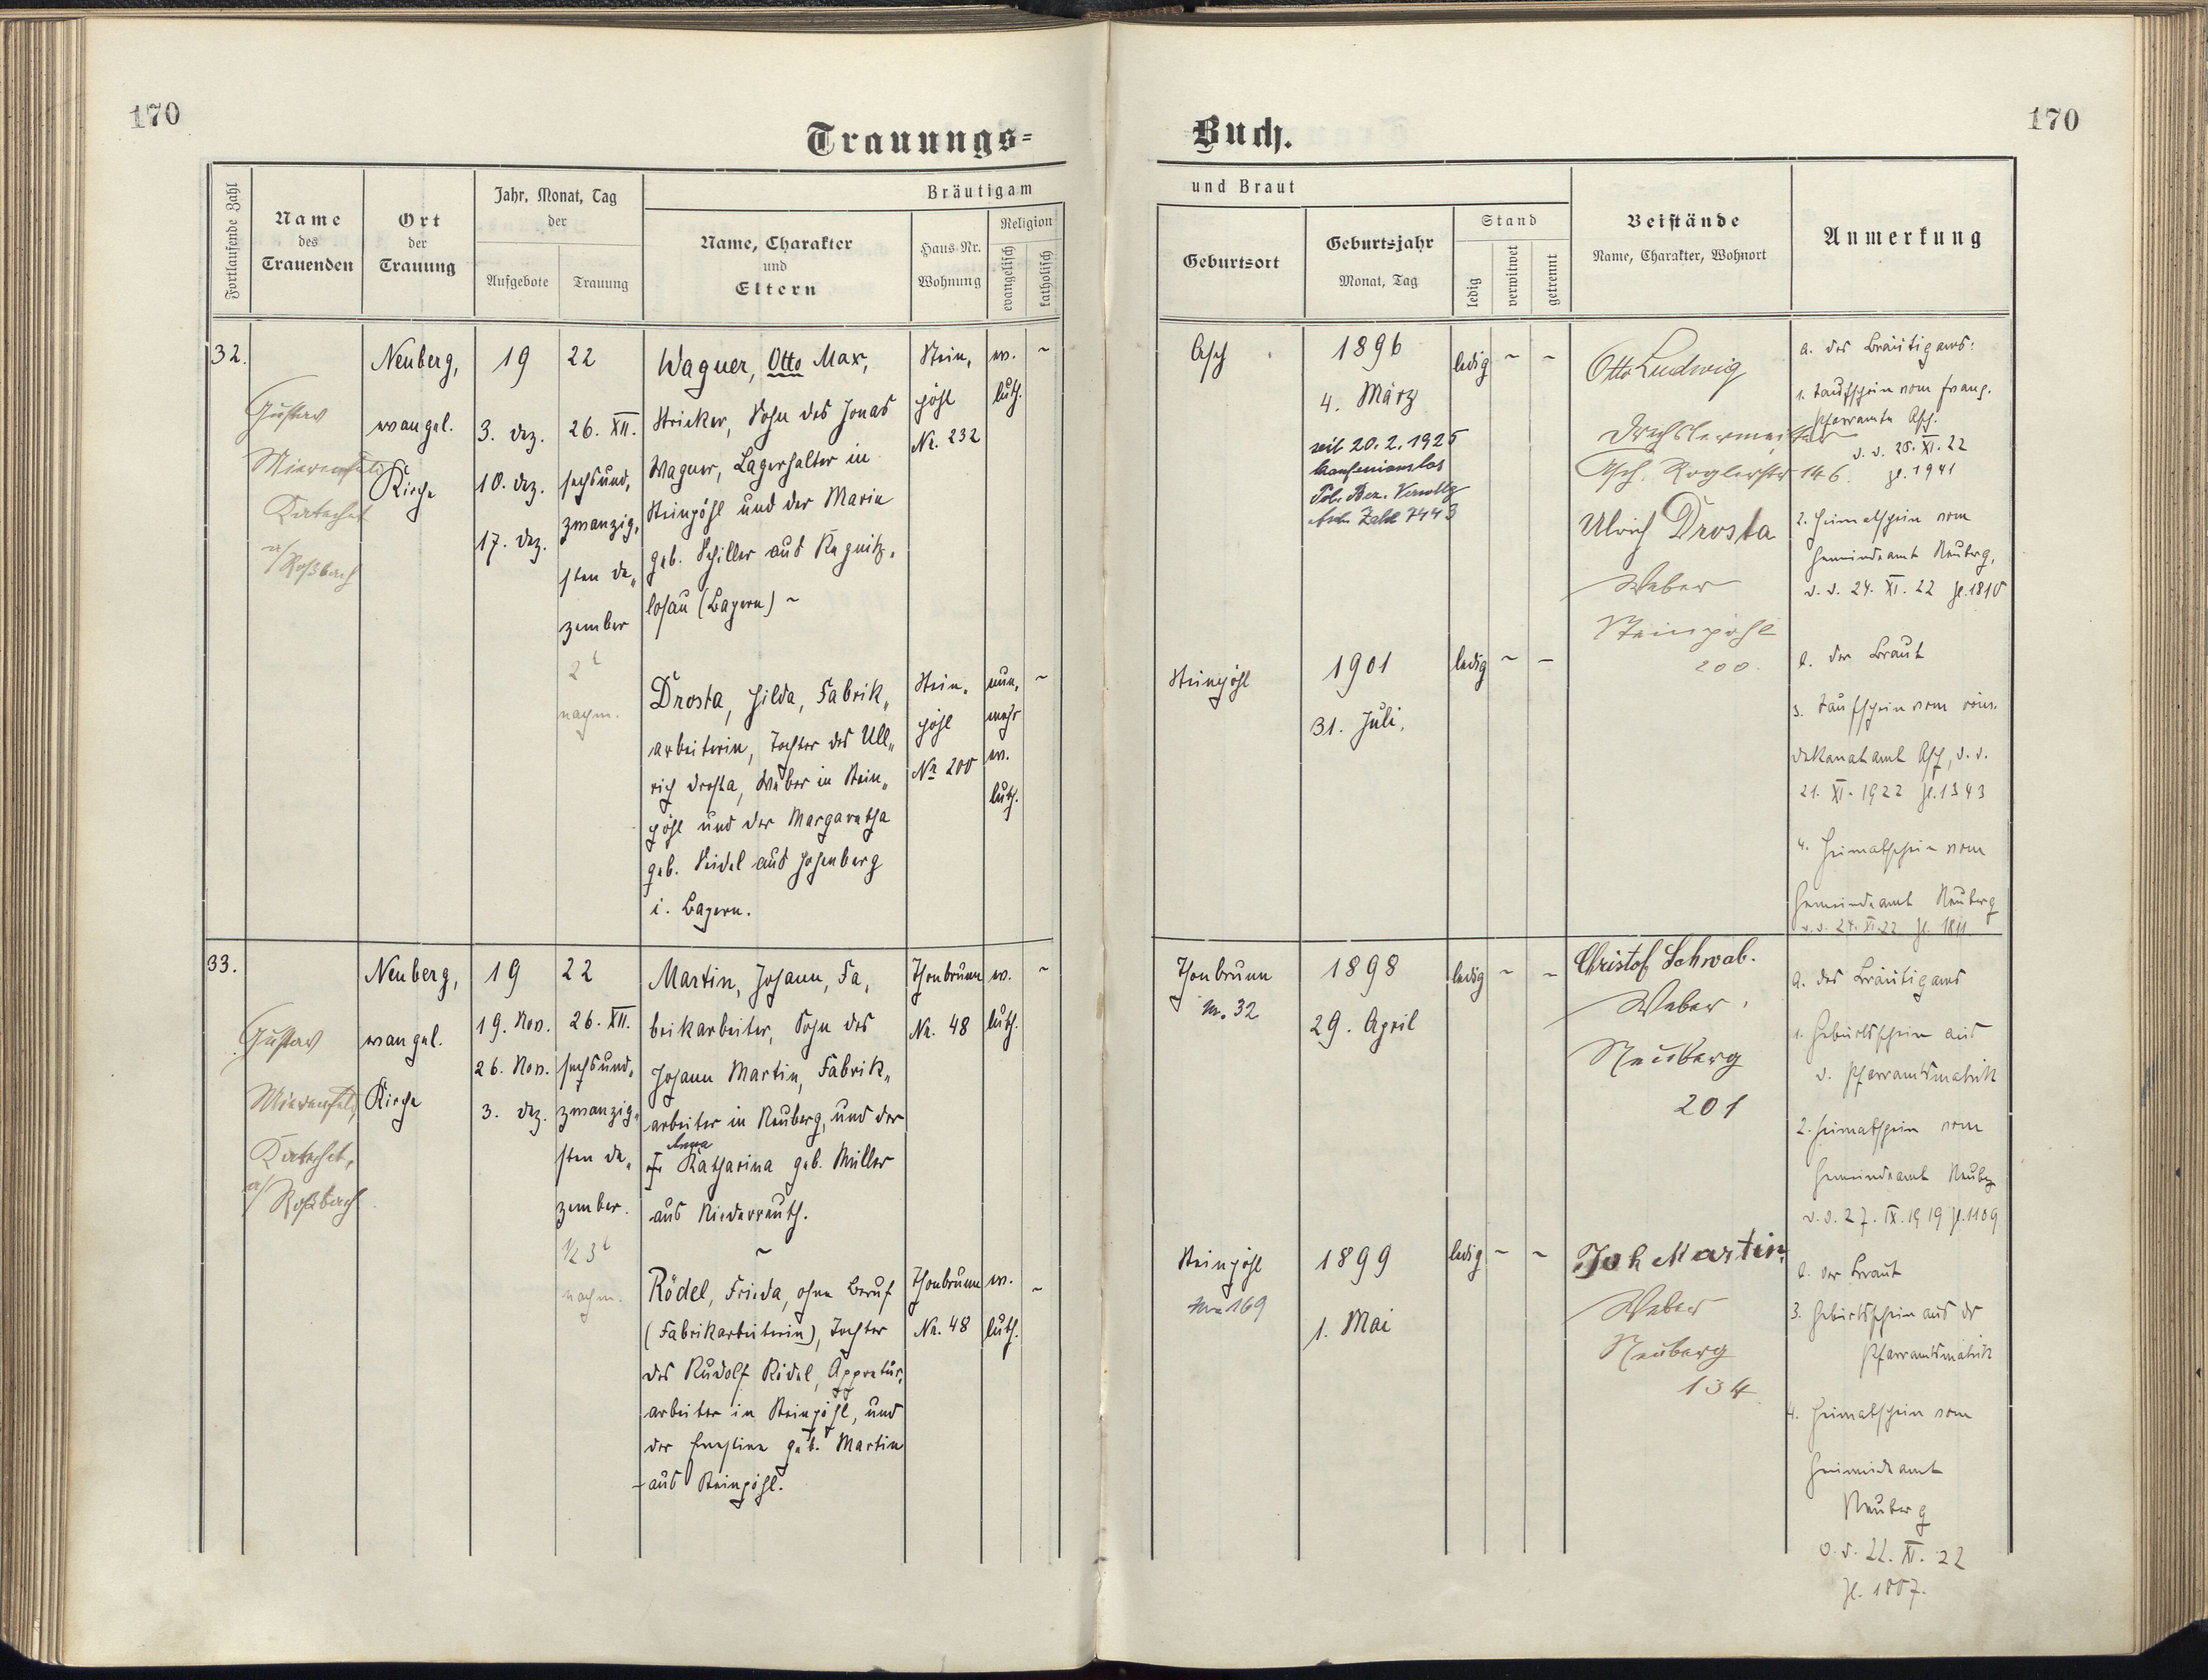 170
170
Trauungs=
Buch.
Fortlaufende Zahl
Name
des
Trauenden
Ort
der
Trauung
Jahr, Monat, Tag
der
Aufgebote
Trauung
Bräutigam
Name, Charakter
und
Eltern
Haus-Nr.
Wohnung
Religion
evangelisch
katholisch
und Braut
Geburtsort
Geburtsjahr
Monat, Tag
Stand
ledig
verwitwet
getrennt
Beistände
Name, Charakter, Wohnort
Anmerkung
32.
Gustav
Katechet
a/Roßbach
Neuberg,
evangel.
Kirche
19
3. Dez.
10. Dez.
17. Dez.
22
26. XII.
sechsund„
zwanzig„
sten De„
zember
nachm.
Wagner, Otto Max,
Stricker, Sohn des Jonas
Wagner, Lagerhalter in
Steinpöhl und der Maria
geb. Schiller aus Regnitz„
losau (Bayern) ~
Stein„
pöhl
Nr. 232
ev.
luth.
~
Drosta, Hilda, Fabrik„
arbeiterin, Tochter des Ull„
rich Drosta, Weber in Stein„
pöhl und der Margaretha
geb. Seidel aus Hohenberg
i. Bayern.
Stein„
pöhl
Nr 200
nun„
mehr
ev.
luth.
~
Asch
1896
4. März
seit 20. 2. 1925
konfessionslos
Zahl 7443
ledig ~ ~
Steinpöhl
1901
31. Juli.
ledig ~ –
Otto Ludwig
Drechslermeister
Asch. Roglerstr 146.
Ulrich Drosta
Weber
Steinpöhl
200.
a. des Bräutigams:
1. Taufschein vom Evang.
Pfarramte Asch.
v. d. 28. XI. 22
Zl. 1941
2. Heimatschein vom
Gemeindeamt Neuberg,
v. d. 24. XI. 22 Zl. 1810
b. der Braut
3. Taufschein vom röm.
Dekanatamt Asch, v. d.
21. XI. 1922 Zl. 1343
4. Heimatschein vom
Gemeindeamt Neuberg
v. d. 24. XI. 22 Zl. 1811.
33.
Gustav
Katechet,
a/Roßbach
Neuberg,
evangel.
Kirche
19
19. Nov.
26. Nov.
3. Dez.
22
26. XII.
sechsund„
zwanzig„
sten De„
zember.
½ 3
nachm.
Martin, Johann, Fa„
brikarbeiter, Sohn des
Johann Martin, Fabrik„
arbeiter in Neuberg, und der
Anna
Katharina geb. Müller
aus Niederreuth.
~
Thonbrunn
Nr. 48
ev.
luth.
~
Rödel, Frieda, ohne Beruf
(Fabrikarbeiterin), Tochter
des Rudolf Rödel, Appretur„
arbeiter in Steinpöhl, und
der Ernestine geb. Martin
aus Steinpöhl.
Thonbrunn
Nr. 48
ev.
luth.
~
Thonbrunn
Nr. 32
1898
29. April
ledig ~ ~
Steinpöhl
Nr. 169
1899
1. Mai
ledig ~ ~
Christof Schwab.
Weber
Neuberg
201
Joh Martin
Weber
Neuberg
134
a. des Bräutigams
1. Geburtsschein aus
d. Pfarramtsmatrik
2. Heimatschein vom
Gemeindeamt Neubg
v. d. 27. IX. 1919 Zl. 1109
b. der Braut
3. Geburtsschein aus dr
Pfarramtsmatrik
4. Heimatschein vom
Gemeindeamt
Neuberg
v. d. 22. XI. 22
Zl. 1807.